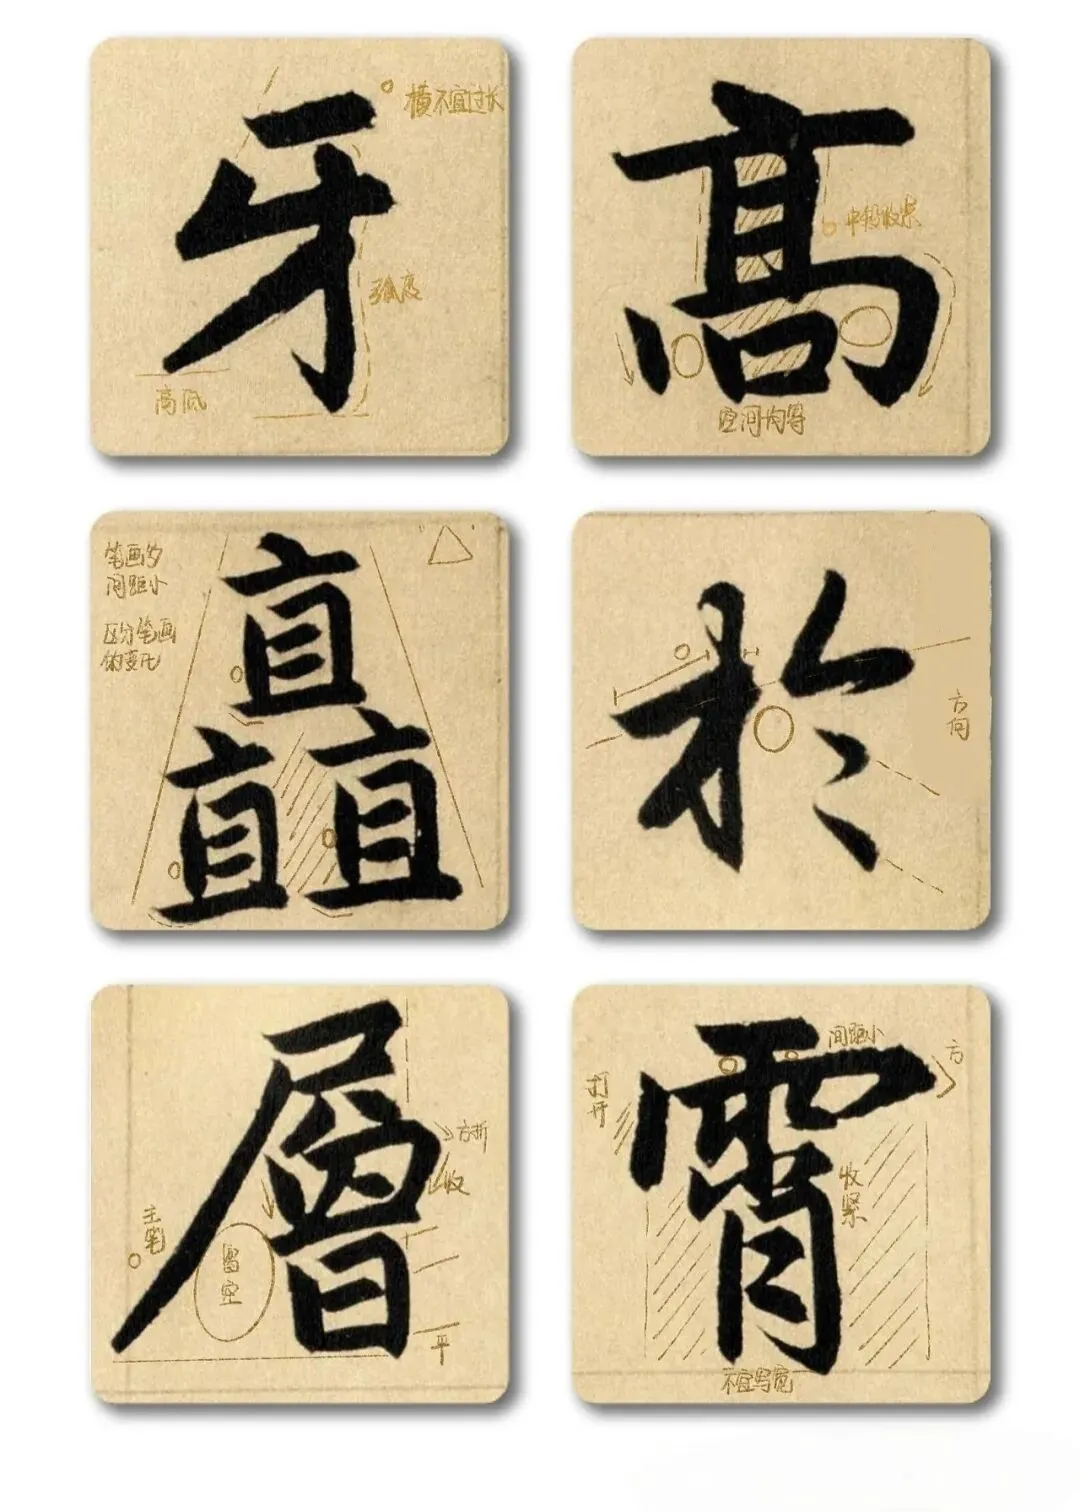 牙
横不宜过长
弧度
高低
髙
中段收紧
空间均等
矗
笔画多
间距小
区分笔画
的变化
於
方向
層
方折
收
主笔
留空
平
霄
间距小
方
打开
收紧
不宜写宽